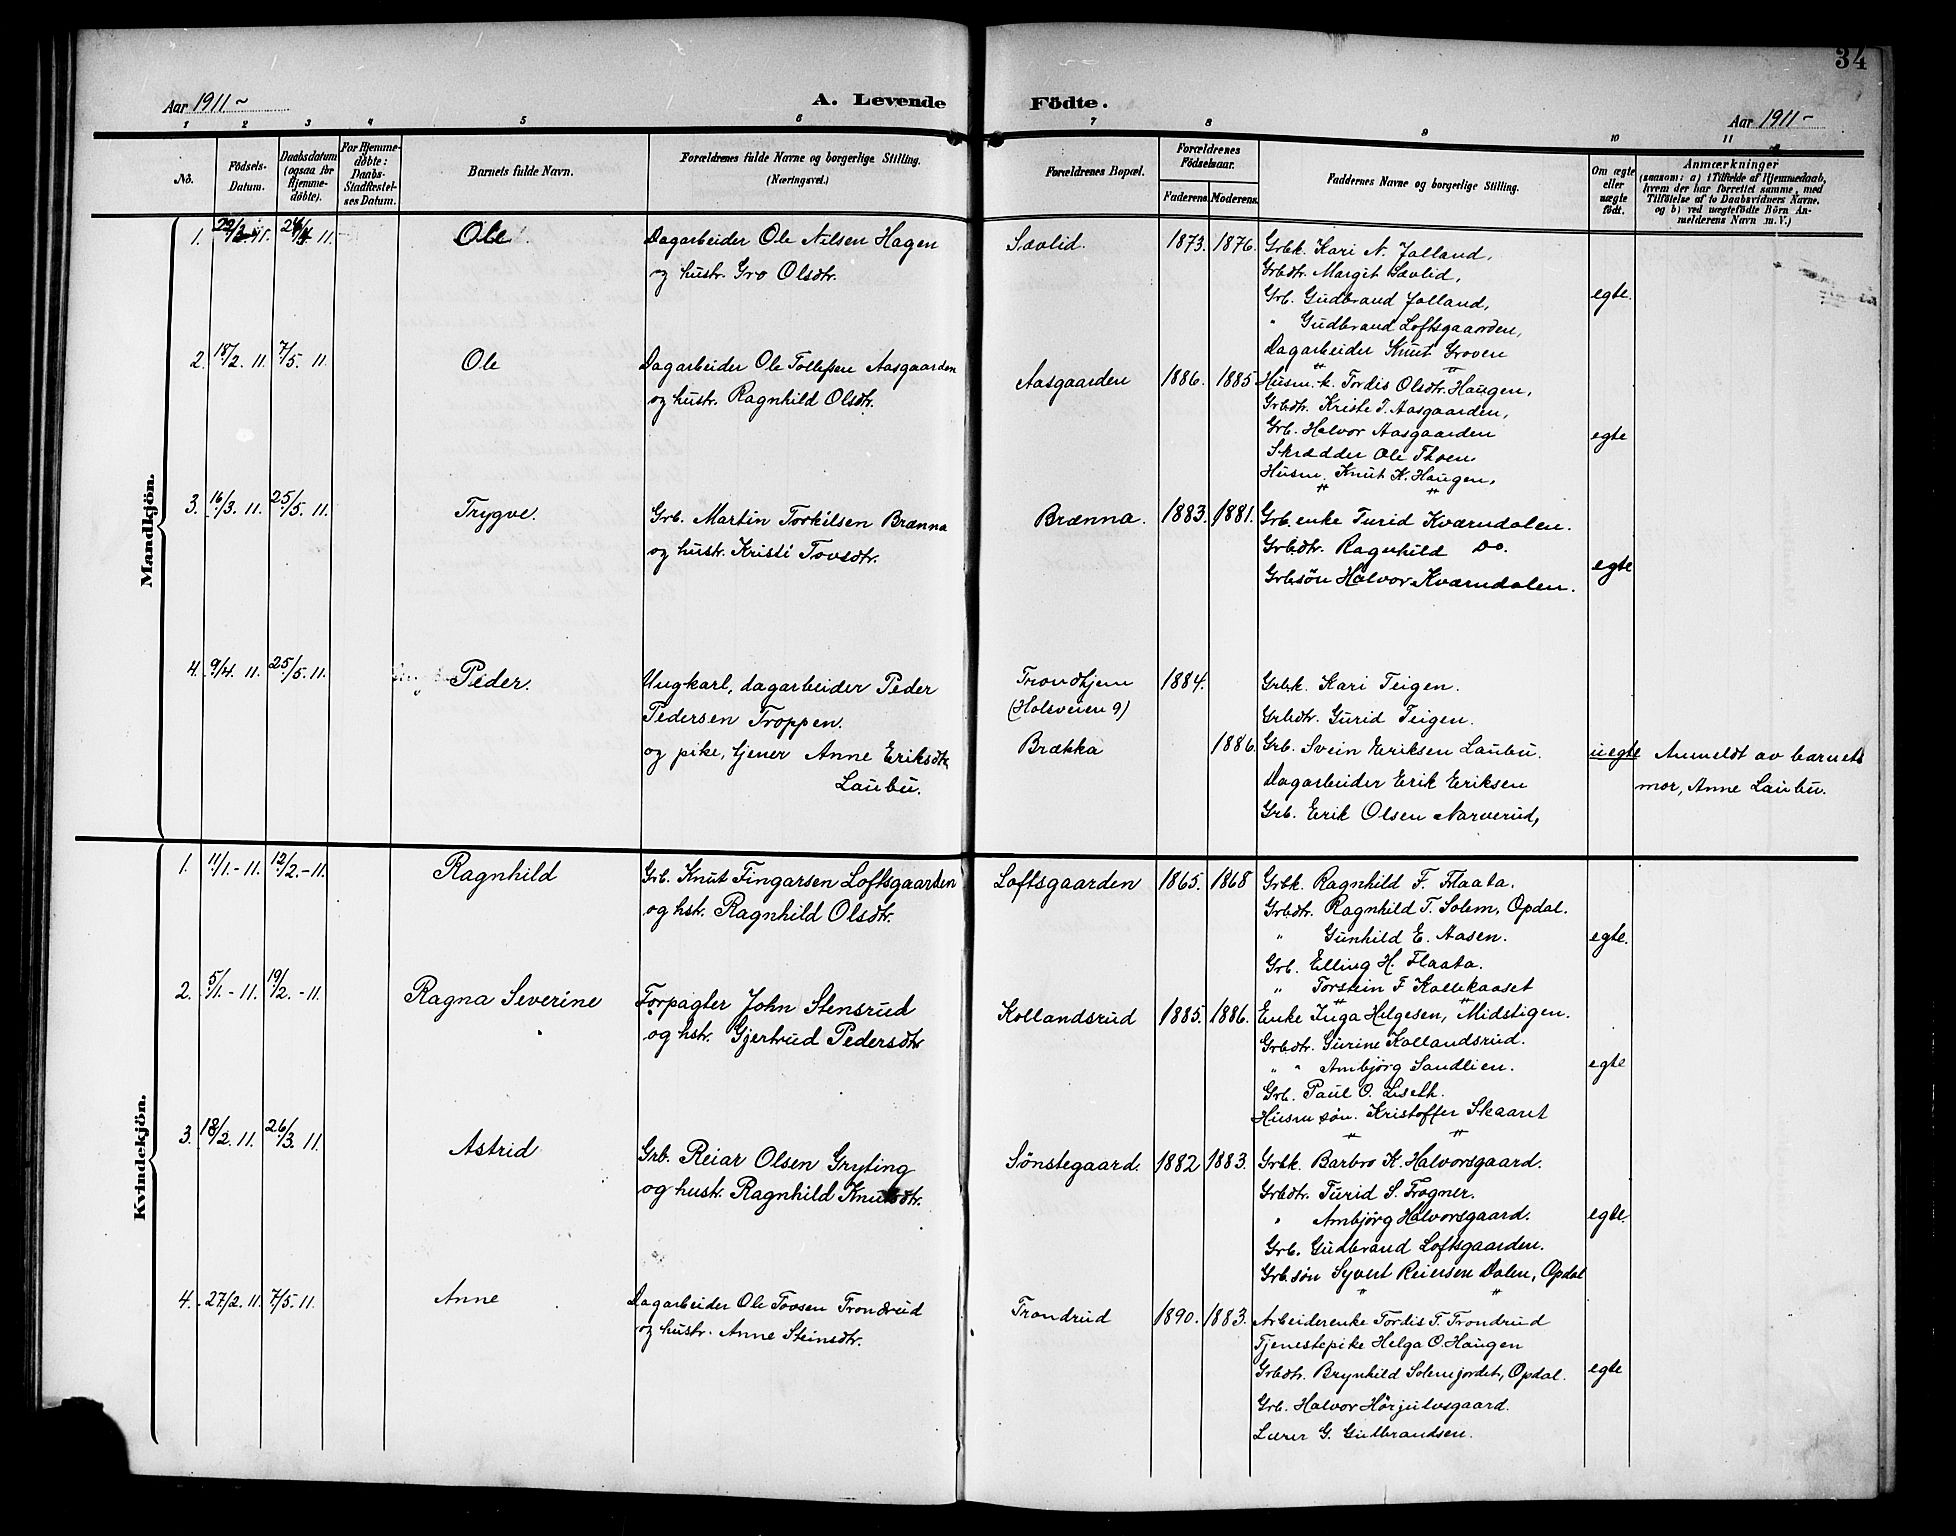 34
Aar 1911 -
A. Levende Födte.
Aar 1911 -
1 2 3 4 5 6 7 8 9 10 11
No.
Födsels-Datum.
Daabsdatum (ogsaa for Hjemme-døbte).
For Hjemme-døbte: Daabs-Stadfæstel-ses Datum.
Barnets fulde Navn.
Forældrenes fulde Navne og borgerlige Stilling. (Næringsvei.)
Forældrenes Bopæl.
Forældrenes Födselsaar.
Faderens. Moderens.
Faddernes Navne og borgerlige Stilling.
Om ægte eller uægte födt.
Anmærkninger
(saasom: a) i Tilfælde af Hjemmedaab, hvem der har forrettet samme, med Tilföielse af to Daabsvidners Navne, og b) ved uægtefödte Börn An-melderens Navn m. V.)
Mandkjön.
1. 11. 11. Ole
Dagarbeider Ole Nilsen Hagen
og hustr. Gro Olsdtr.
Sævlid. 1873. 1876.
Grbk. Kari N. Jolland,
Grbdtr. Margit Sævlid,
Grb. Gudbrand Jolland,
" Gudbrand Loftsgaarden,
Dagarbeider Knut Groven
egte.
2. 18/2. 11. 7/5. 11. Ole
Dagarbeider Ole Tollefsen Aasgaarden
og hustr. Ragnhild Olsdtr.
Aasgaarden 1886. 1885
Husm. k. Tordis Olsdtr. Haugen,
Grbdtr. Kristi T. Aasgaarden,
Grb. Halvor Aasgaarden
Skrædder Ole Thoen
Husm. Knut K. Haugen,
egte
3. 16/3. 11. 25/5. 11. Trygve.
Grb. Martin Torkilsen Brænna
og hustr. Kristi Tovsdtr.
Brænna. 1883. 1881.
Grb. enke Turid Kværndalen.
Grbdtr. Ragnhild Do.
Grbsøn Halvor Kværndalen.
egte
4. 9/4. 11. 25/5. 11. Peder.
Ungkarl, dagarbeider Peder
Pedersen Troppen.
og pike, tjener Anne Eriksdtr.
Laubu.
Trondhjem
(Holsveien 9)
1884.
Brække
1886.
Grbk. Kari Teigen.
Grbdtr. Gurid Teigen.
Grb. Svein Eriksen Laubu.
Dagarbeider Erik Eriksen
Grb. Erik Olsen Narverud,
uegte
Anmeldt av barnets
mor, Anne Laubu.
Kvindekjön.
1. 11/1. - 11. 12/2. - 11. Ragnhild
Grb. Knut Fingarsen Loftsgaarden
og hstr. Ragnhild Olsdtr.
Loftsgaarden 1865. 1868
Grbk. Ragnhild F. Flaata.
Grbdtr. Ragnhild T. Solem, Opdal.
" Gunhild E. Aasen.
Grb. Elling H. Flaata.
" Torstein F Kollekaaset
egte.
2. 5/1. - 11. 19/2. - 11. Ragna Severine
Forpagter John Stensrud
og hstr. Gjertrud Pedersdtr
Kollandsrud 1885. 1886.
Enke Inga Helgesen, Midstigen.
Grbdtr. Gurine Kollandsrud.
" " Ambjörg Sandlien.
Grb. Paul O. Liseth.
Husm søn. Kristoffer Skaaret
egte
3. 18/2. 11. 26/3. 11 Astrid
Grb. Reiar Olsen Gryting
og hustr. Ragnhild Knutsdtr.
Sønstegaard. 1882 1883.
Grbk. Barbro K. Halvorsgaard.
Grbdtr. Turid S. Frogner.
" Ambjörg Halvorsgaard.
Grb. Gudbrand Loftsgaarden.
Grb. søn Syvert Reiersen Dalen, Opdal
egte.
4. 27/2. 11. 7/5. 11. Anne
Dagarbeider Ole Tovsen Trondrud
og hustr. Anne Steinsdtr.
Trondrud 1890. 1883.
Arbeiderenke Tordis T. Trondrud
Tjenestepike Helga O. Haugen
Grbdtr. Brynhild Solemjordet, Opdal.
Grb. Halvor Hörjulvsgaard.
Lærer G. Gudbrandsen.
egte